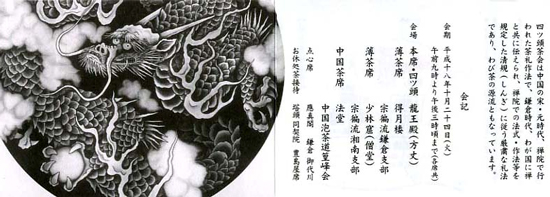 四ツ頭茶会は中国の宋・元時代、禅院で行
われた茶礼作法で、鎌倉時代、わが国に禅
と共に伝えられ、禅院での法式・作法等を
規定した清規(しんぎ)に従う厳粛な礼法
であり、わび茶の源流ともなっています。
会記
会期 平成十八年十月二十四日(火)
午前九時より午後三時頃まで(各席共)
会場 本席・四ツ頭 龍王殿(方丈)
薄茶席 得月楼
宗徧流鎌倉支部
薄茶席 少林窟(僧堂)
宗徧流湘南支部
中国茶席 法堂
中国泡茶道篁峰会
点心席 應真閣 鎌倉 御代川
お休処茶接待 塔頭 同契院 豊島屋席